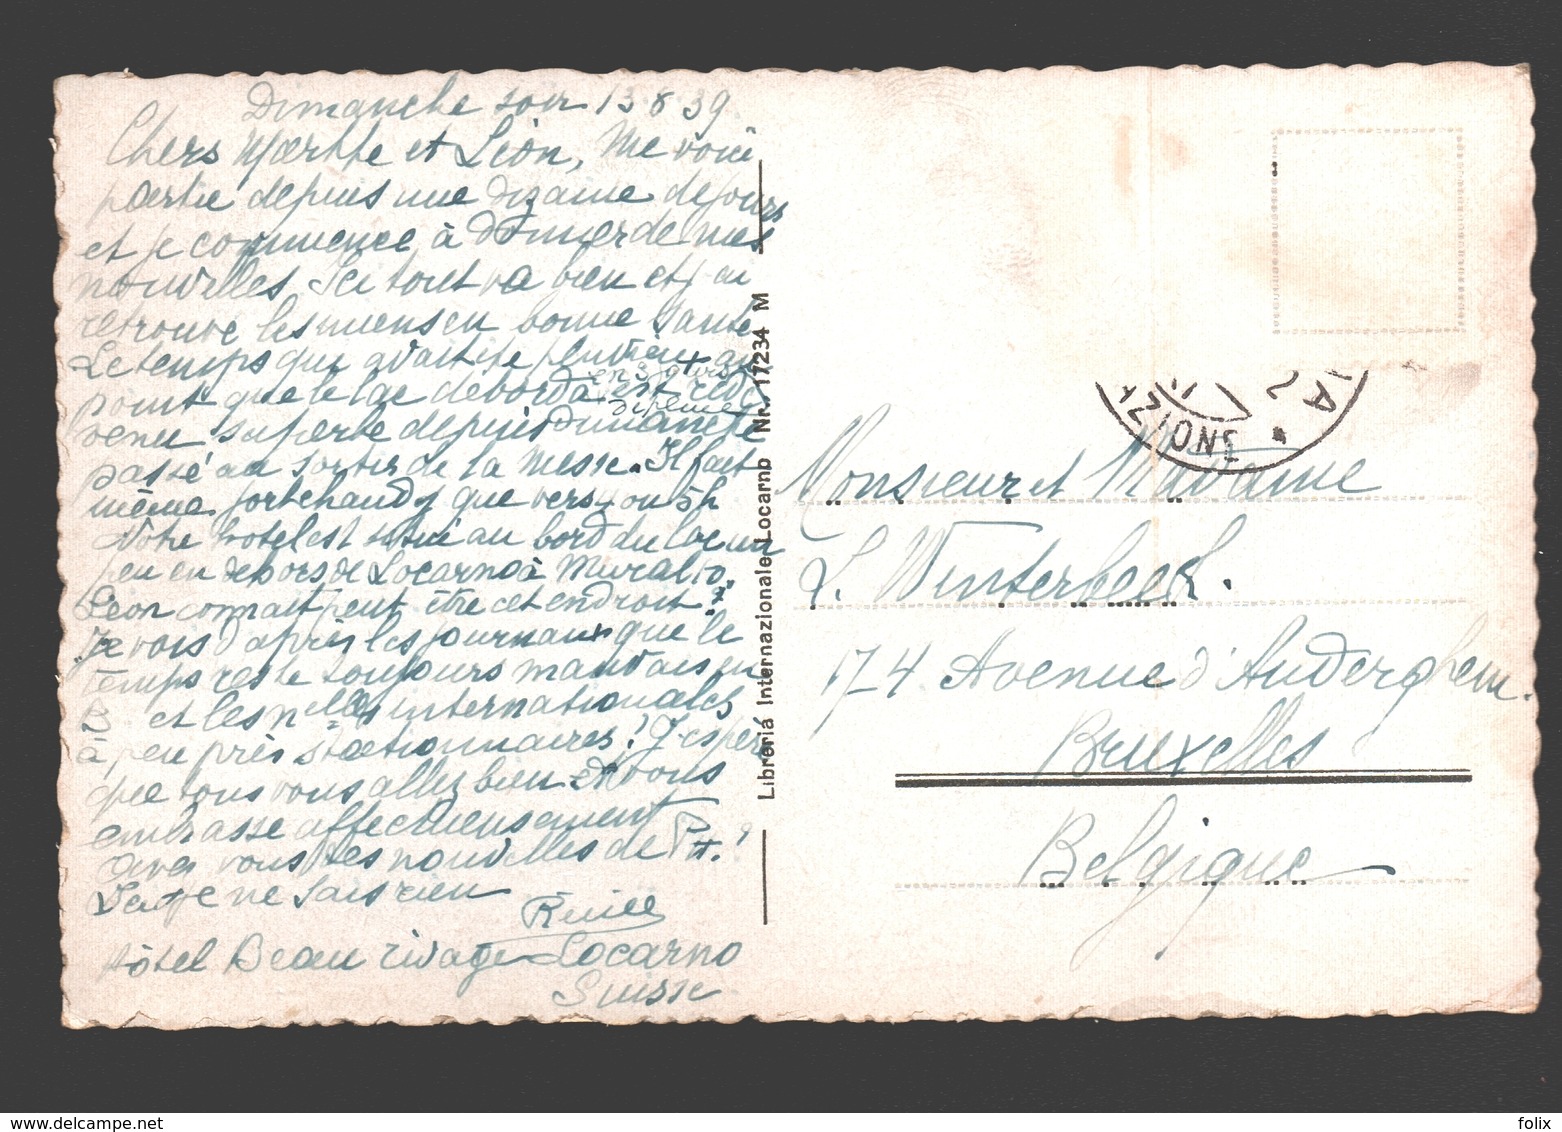 Dimanche soir 13 8 39.
Chers Marthe et Léon, Me voici
partie depuis une dizaine de jours
et je commence à donner de mes
nouvelles. Ici tout va bien et j'ai
retrouvé les miens en bonne santé
Le temps qui avait été pluvieux au
point que le lac déborda est rede
en 3 places
venu superbe depuis dimanche
passé au sortir de la messe. Il fait
même fort chaud que vers 4 ou 5h
Notre hotel est situé au bord du lac un
peu en dehors de Locarno à Muralto.
Léon connait peut être cet endroit?
Je vois d'après les journaux que le
temps reste toujours mauvais en
B et les nelles internationales
à peu près stationnaires! J'espère
que tous vous allez bien et vous
embrasse affectueusement
Avez vous des nouvelles de P.H.?
Ici je ne sais rien
Hôtel Beau rivage Locarno
Suisse
Libreria Internazionale Locarno Nr. 17234 M
Monsieur et Madame
L. Winterbeek.
174 Avenue d'Auderghem.
Bruxelles
Belgique